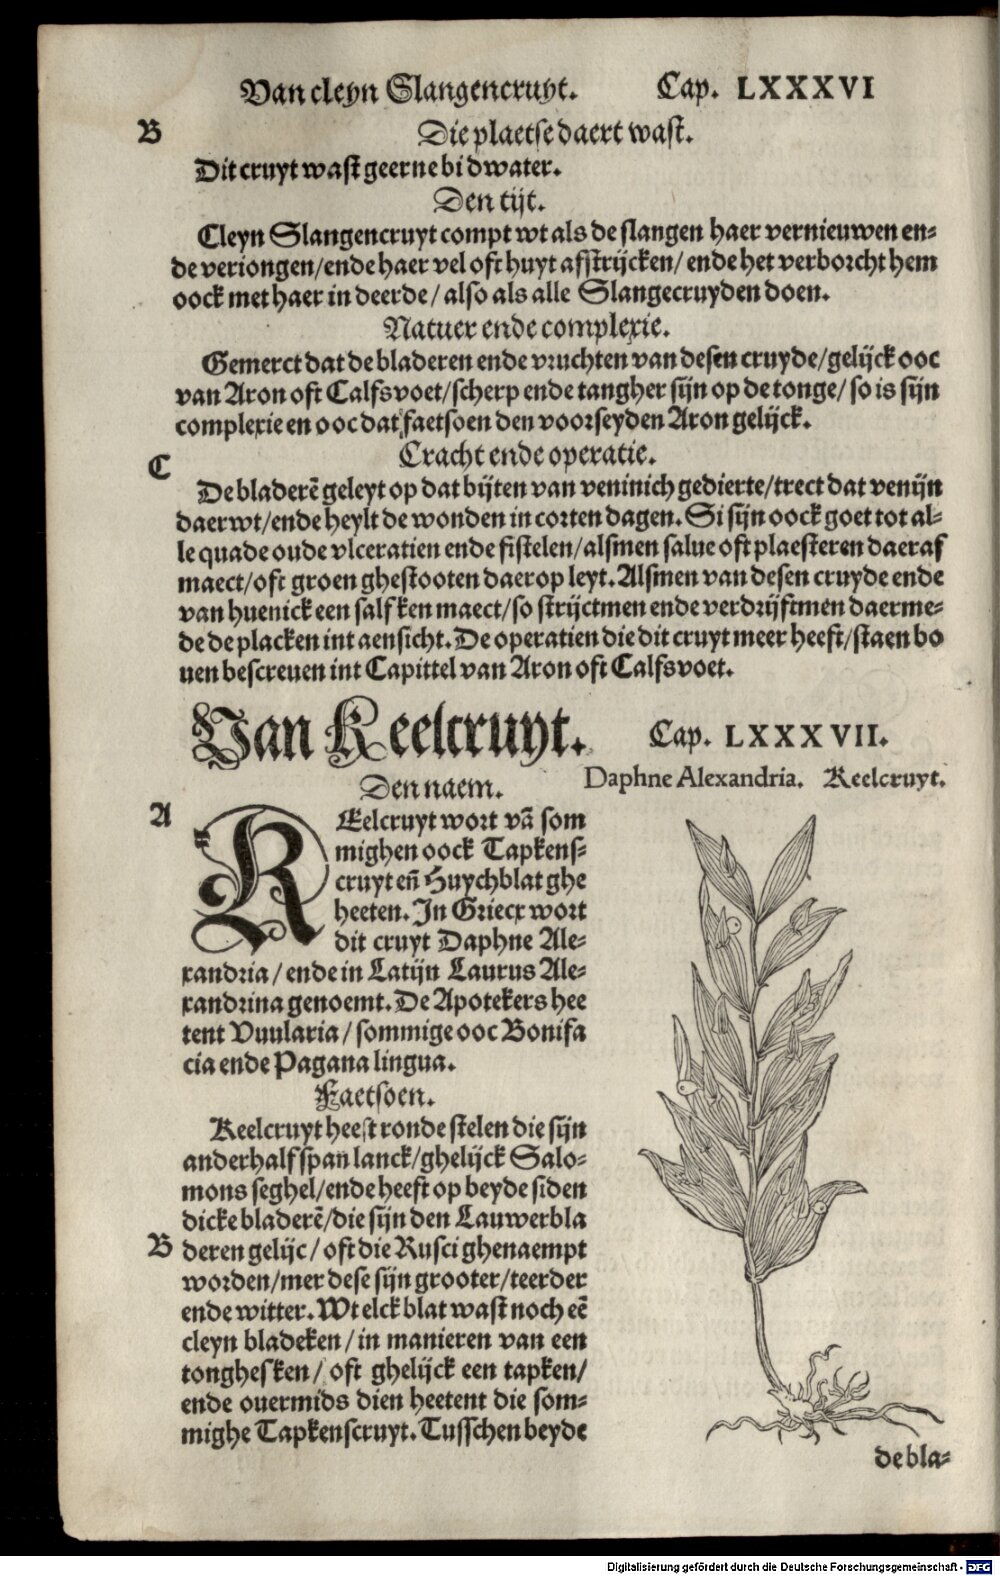 Van cleyn Slangencruyt. Cap. LXXXVI
B Die plaetse daert wast.
Dit cruyt wast geerne bi dwater.
Den tijt.
Cleyn Slangencruyt compt wt als de slangen haer vernieuwen en⸗
de veriongen/ende haer vel oft huyt afstrijcken/ende het verborcht hem
oock met haer in deerde/also als alle Slangecruyden doen.
Natuer ende complexie.
Gemerct dat de bladeren ende vruchten van desen cruyde/gelijck ooc
van Aron oft Calfsvoet/scherp ende tangher sijn op de tonge/so is sijn
complexie en ooc dat faetsoen den voorseyden Aron gelijck.
C Cracht ende operatie.
De bladerē geleyt op dat bijten van veninich gedierte/trect dat venijn
daer wt/ende heylt de wonden in corten dagen. Si sijn oock goet tot al⸗
le quade oude vlceratien ende fistelen/alsmen salue oft plaesteren daer af
maect/oft groen ghestooten daer op leyt. Alsmen van desen cruyde ende
van huenick een salfken maect/so strijctmen ende verdrijftmen daerme⸗
de de placken int aensicht. De operatien die dit cruyt meer heeft/staen bo
uen bescreuen int Capittel van Aron oft Calfsvoet.
Van Keelcruyt. Cap. LXXXVII.
Den naem. Daphne Alexandria. Keelcruyt.
A KEelcruyt wort vā som
mighen oock Tapkens⸗
cruyt eñ Huychblat ghe
heeten. In Griecx wort
dit cruyt Daphne Ale⸗
xandria/ende in Latijn Laurus Ale⸗
xandrina genoemt. De Apotekers hee
tent Vuularia/sommige ooc Bonifa
cia ende Pagana lingua.
Faetsoen.
Keelcruyt heest ronde stelen die sijn
anderhalf span lanck/ghelijck Salo⸗
mons seghel/ende heeft op beyde siden
dicke bladerē/die sijn den Lauwerbla
B deren gelijc/oft die Rusci ghenaempt
worden/mer dese sijn grooter/teerder
ende witter. Wt elck blat wast noch eē
cleyn bladeken/in manieren van een
tonghesken/oft ghelijck een tapken/
ende ouermids dien heetent die som⸗
mighe Tapkenscruyt. Tusschen beyde
de bla⸗
Digitalisierung gefördert durch die Deutsche Forschungsgemeinschaft - DFG